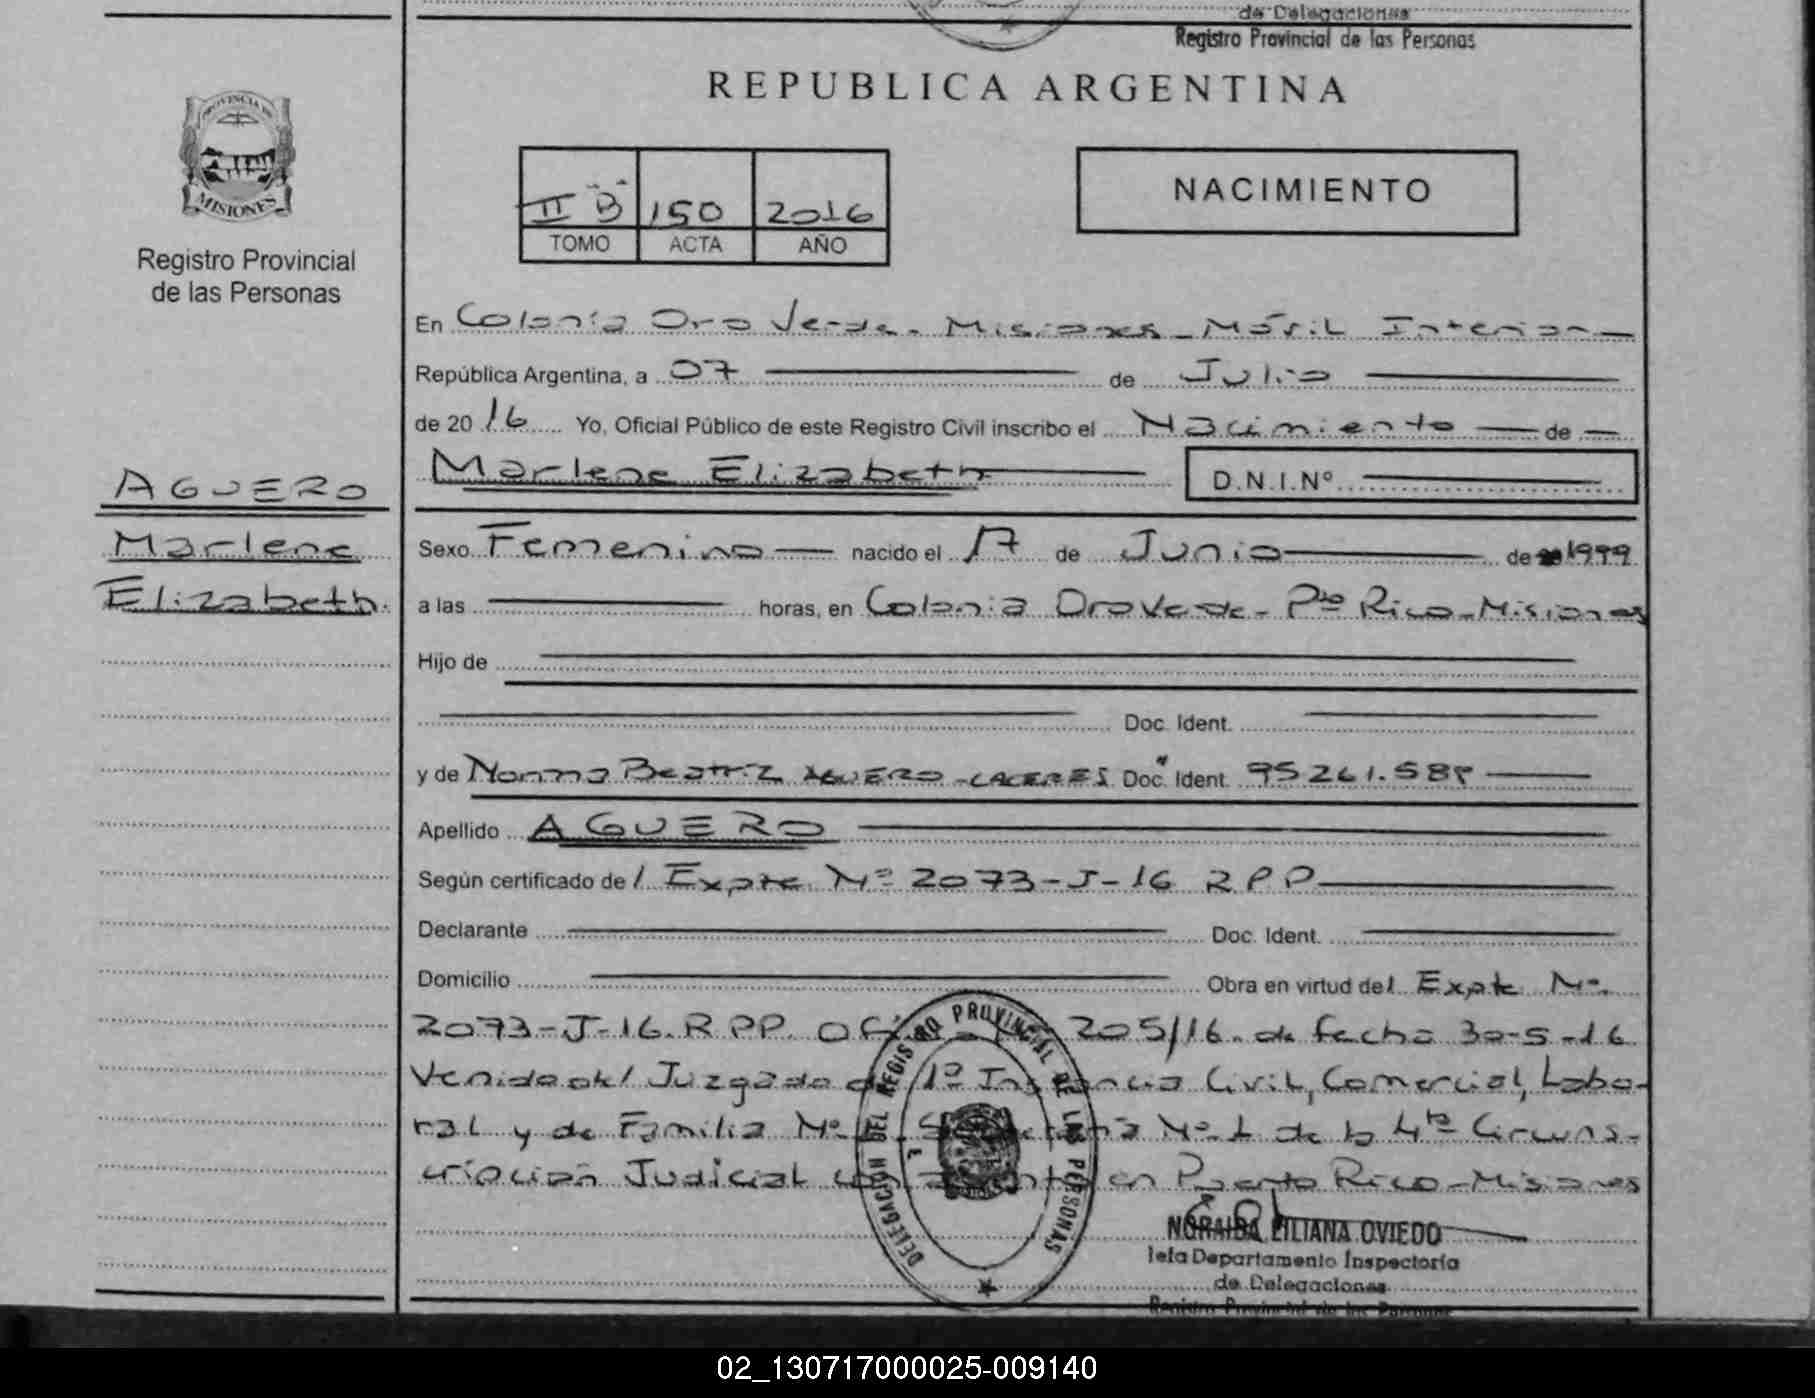 de Delegaciones
Registro Provincial de las Personas
REPUBLICA ARGENTINA
PROVINCIA DE
MISIONES
Registro Provincial
de las Personas
II "B" 150 2016
TOMO ACTA AÑO
NACIMIENTO
En Colonia Oro Verde - Misiones - Móvil Interior
República Argentina, a 07 de Julio
de 2016 Yo, Oficial Público de este Registro Civil inscribo el Nacimiento de
Marlene Elizabeth D.N.I.Nº
AGUERO
Marlene
Elizabeth.
Sexo Femenino nacido el 17 de Junio de 1999
a las horas, en Colonia Oro Verde - Pto Rico - Misiones
Hijo de
Doc. Ident.
y de Norma Beatriz AGUERO - CACERES Doc. Ident. 95261.58
Apellido AGUERO
Según certificado del Expte Nº 2073-J-16 RPP
Declarante Doc. Ident.
Domicilio Obra en virtud del Expte Nº
2073-J-16. RPP. 205/16. de fecha 30-5-16
Venido del Juzgado de 1ª Instancia Civil, Comercial, Labo-
ral y de Familia Nº Secretaría Nº 1 de la 4ta Circuns-
cripción Judicial con asiento en Puerto Rico - Misiones
DELEGACION DEL REGISTRO PROVINCIAL DE LAS PERSONAS
NORAIDA LILIANA OVIEDO
Jefa Departamento Inspectoría
de Delegaciones
Registro Provincial de las Personas
02_130717000025-009140